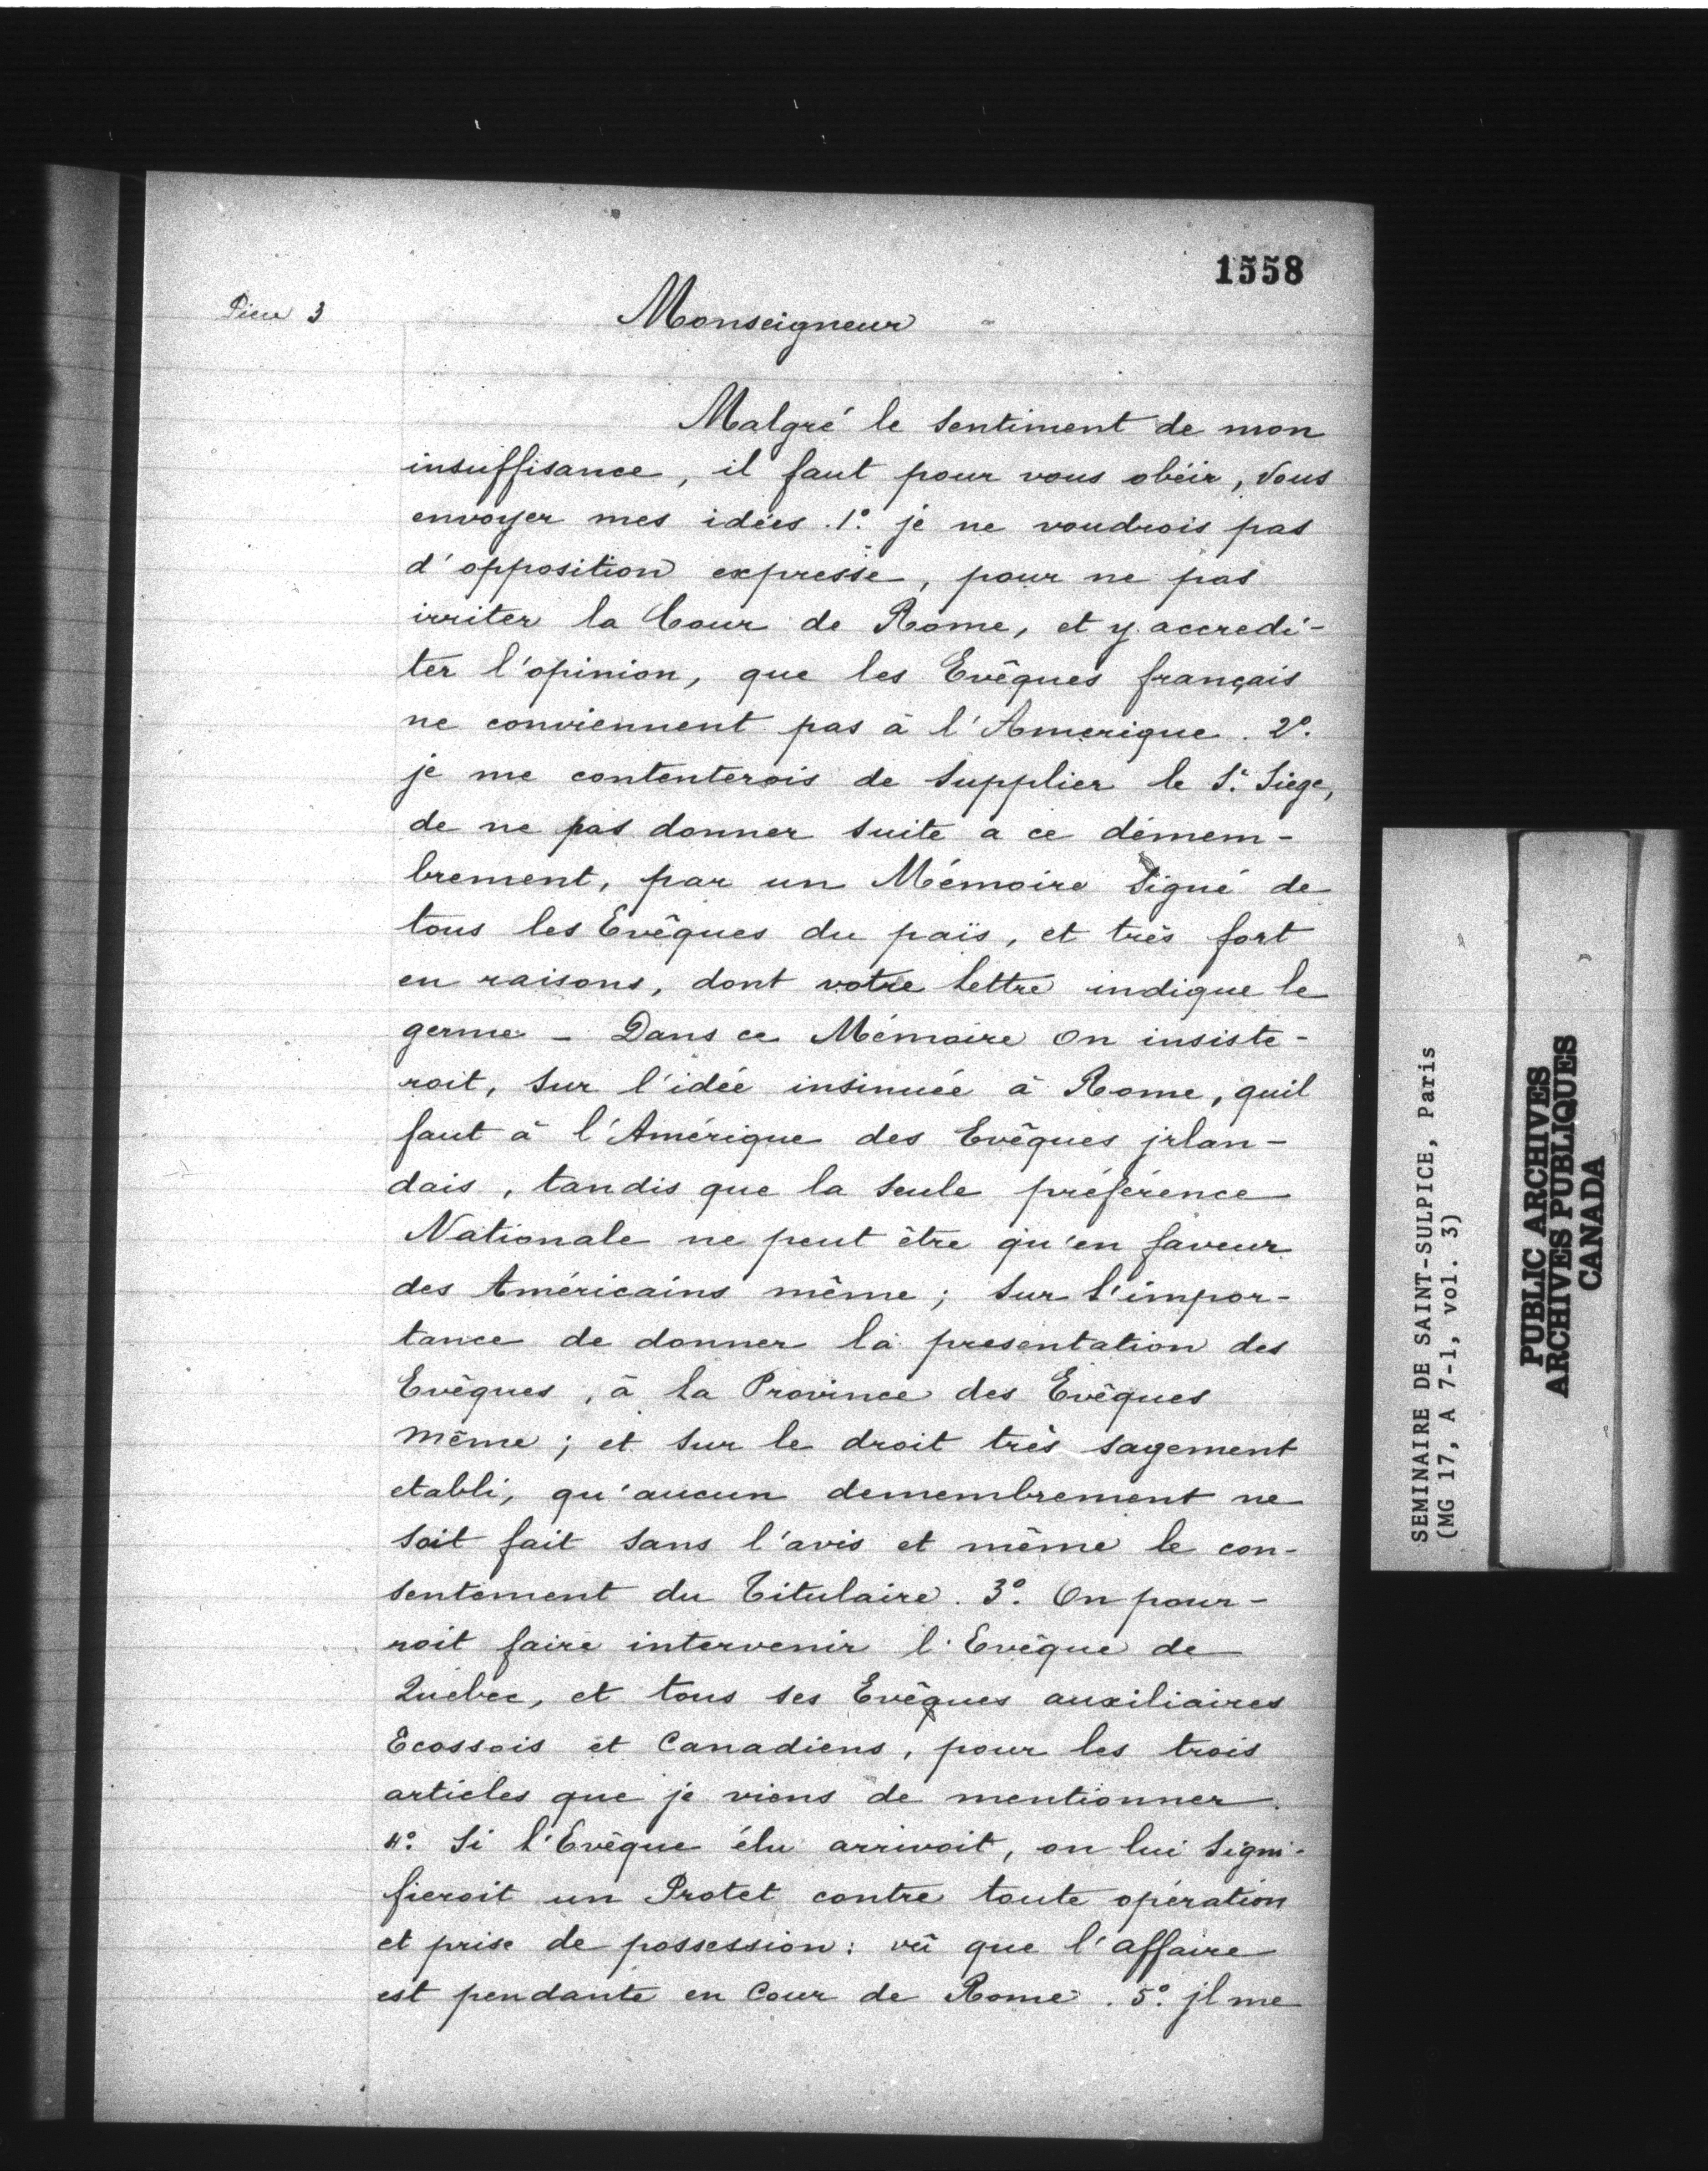 1558
Piece 3
Monseigneur
Malgré le sentiment de mon
insuffisance, il faut pour vous obéir, vous
envoyer mes idées. 1º. je ne voudrois pas
d'opposition expresse, pour ne pas
irriter la Cour de Rome, et y accredi-
ter l'opinion, que les Evêques français
ne conviennent pas à l'Amerique. 2º.
je me contenterois de supplier le St. Siege,
de ne pas donner suite a ce démem-
brement, par un Mémoire signé de
tous les Evêques du païs, et très fort
en raisons, dont votre lettre indique le
germe - Dans ce Mémoire on insiste-
roit, sur l'idée insinuée à Rome, quil
faut à l'Amérique des Evêques jrlan-
dais, tandis que la seule préférence
Nationale ne peut être qu'en faveur
des Américains même; sur l'impor-
tance de donner la presentation des
Evêques, à la Province des Evêques
même; et sur le droit très sagement
etabli, qu'aucun demembrement ne
soit fait sans l'avis et même le con-
sentement du Titulaire. 3º. On pour-
roit faire intervenir l'Evêque de
Québec, et tous ses Evêques auxiliaires
Ecossois et Canadiens, pour les trois
articles que je viens de mentionner.
4º. Si l'Evêque élu arrivoit, on lui signi-
fieroit un Protet contre toute opération
et prise de possession: vû que l'affaire
est pendante en Cour de Rome. 5º. jl me
SEMINAIRE DE SAINT-SULPICE, Paris
(MG 17, A 7-1, vol. 3)
PUBLIC ARCHIVES
ARCHIVES PUBLIQUES
CANADA